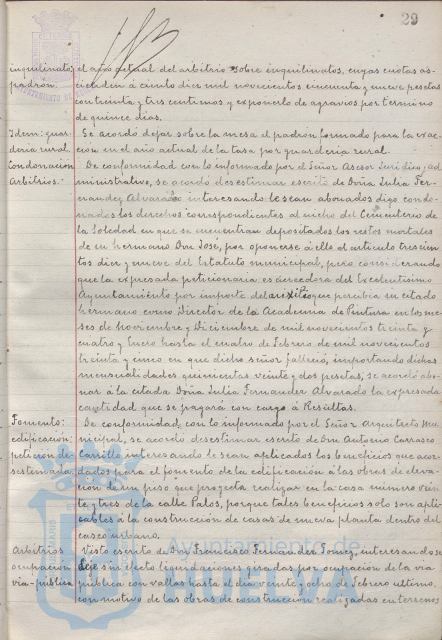 29
inquilinato;
padrón.
el año actual del arbitrio sobre inquilinatos, cuyas cuotas as-
cienden á ciento diez mil novecientos cincuenta y nueve pesetas
con treinta y tres centimos y exponerlo de agravios por termino
de quince dias.
Idem: guar-
dería rural.
Se acordó dejar sobre la mesa el padrón formado para la exac-
ción en el año actual de la tasa por guardería rural.
Condonación
Arbitrios.
De conformidad con lo informado por el Señor Asesor Jurídico, ad
ministrativo, se acordó desestimar escrito de Doña Julia Fer-
nandez Alvarado interesando le sean abonados digo condo-
nados los derechos correspondientes al nicho del Cementerio de
la Soledad en que se encuentran depositados los restos mortales
de su hermano Don José, por oponerse á ello el articulo trescien
tos diez y nueve del Estatuto municipal, pero considerando
que la expresada peticionaria es acreedora del Excelentísimo
Ayuntamiento por importe del auxilio que percibia su citado
hermano como Director de la Academia de Pintura en los me-
ses de Noviembre y Diciembre de mil novecientos treinta y
cuatro y Enero hasta el cuatro de Febrero de mil novecientos
treinta y cinco en que dicho señor falleció, importando dichas
mensualidades quinientas veinte y dos pesetas, se acordó abo-
nar á la citada Doña Julia Fernandez Alvarado la expresada
cantidad que se pagará con cargo á Resultas.
Fomento:
edificación:
petición de-
sestimada.
De conformidad con lo informado por el Señor Arquitecto Mu-
nicipal, se acordó desestimar escrito de Don Antonio Carrasco
Carrillo interesando le sean aplicados los beneficios que acor-
dados para el fomento de la edificación á las obras de eleva-
ción de un piso que proyecta realizar en la casa número vein
te y tres de la calle Palos, porque tales beneficios solo son apli-
cables á la construcción de casas de nueva planta dentro del
casco urbano.
Arbitrios
ocupación
via-publica
Visto escrito de Don Francisco Fernandez Gomez, interesando se
deje sin efecto liquidaciones giradas por ocupación de la via
publica con vallas hasta el dia veinte y ocho de Febrero ultimo,
con motivo de las obras de construcción realizadas en terrenos
Ayuntamiento de
HUELVA